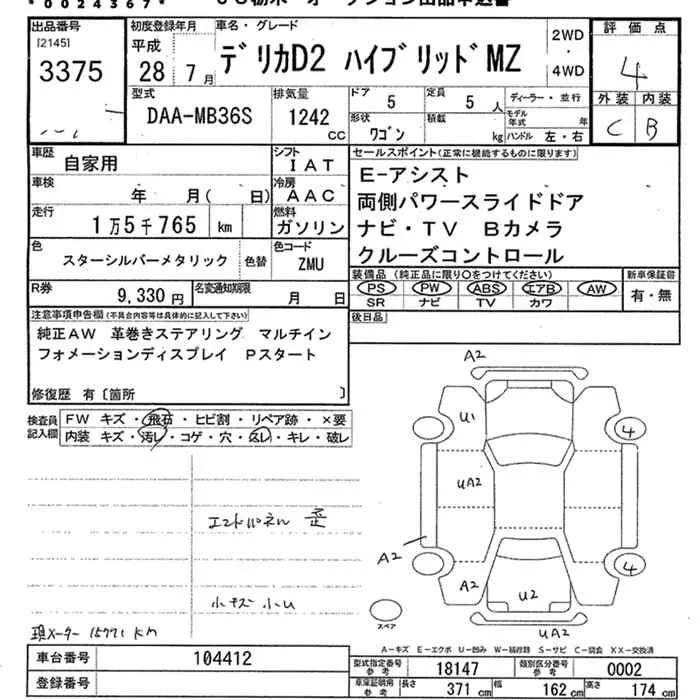 *0024367*
出品番号 初度登録年月 車名・グレード 評価点
[2145]
3375
平成
28 7月
デリカD2 ハイブリッドMZ
2WD
・
4WD
4
型式 排気量 ドア 5 定員 5人 ディーラー・並行 外装 内装
DAA-MB36S 1242cc 形状 ワゴン 積載 kg モデル年式 年 ハンドル 左・右 C B
車歴 自家用 シフト IAT セールスポイント(正常に機能するものに限ります)
車検 年 月( 日) 冷房 AAC
E-アシスト
両側パワースライドドア
走行 1万5千765 km 燃料 ガソリン
ナビ・TV Bカメラ
クルーズコントロール
色 スターシルバーメタリック 色替 色コード ZMU
R券 9,330円 名変通知期限 月 日
装備品(純正品に限り○をつけてください) 新車保証書
PS PW ABS エアB AW 有・無
SR ナビ TV カワ
注意事項申告欄(不具合内容等は具体的に記入して下さい) 後日品
純正AW 革巻きステアリング マルチイン
フォメーションディスプレイ Pスタート
修復歴 有〔箇所 〕
検査員記入欄 FW キズ・飛石・ヒビ割・リペア跡・×要
内装 キズ・汚レ・コゲ・穴・スレ・キレ・破レ
A2
U1
4
UA2
エンドパネル 歪
A2
4
A2
U2
小キズ 小U
スペア
UA2
現メーター 15771 KM
A-キズ E-エクボ U-凹み W-補修跡 S-サビ C-腐食 XX-交換済
車台番号 104412 型式指定番号 参考 18147 類別区分番号 参考 0002
登録番号 車庫証明用 参考 長さ 371cm 幅 162cm 高さ 174cm